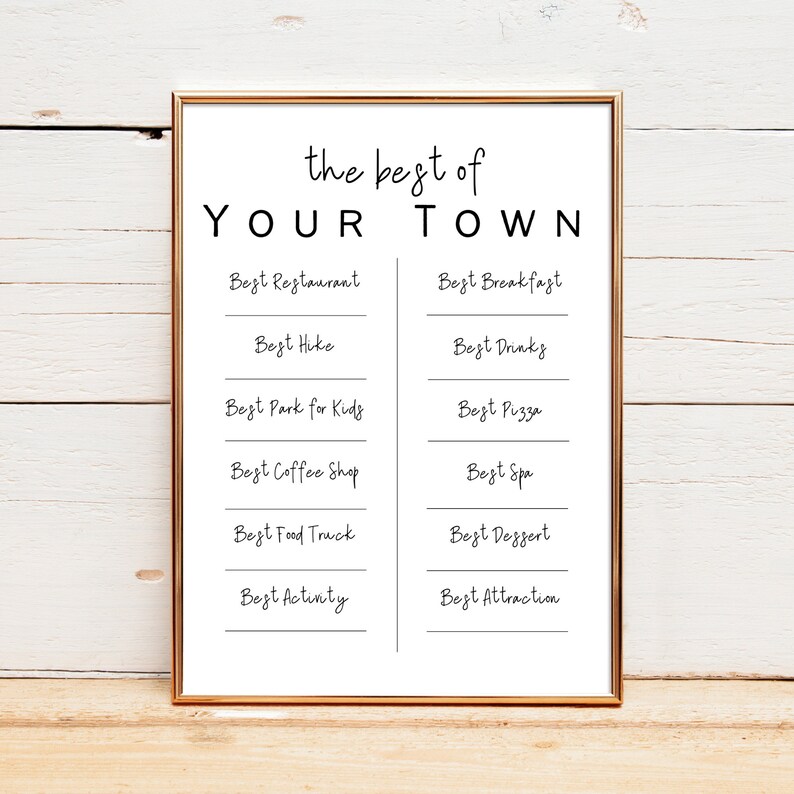 the best of
Your Town
Best Restaurant
Best Hike
Best Park for Kids
Best Coffee Shop
Best Food Truck
Best Activity
Best Breakfast
Best Drinks
Best Pizza
Best Spa
Best Dessert
Best Attraction